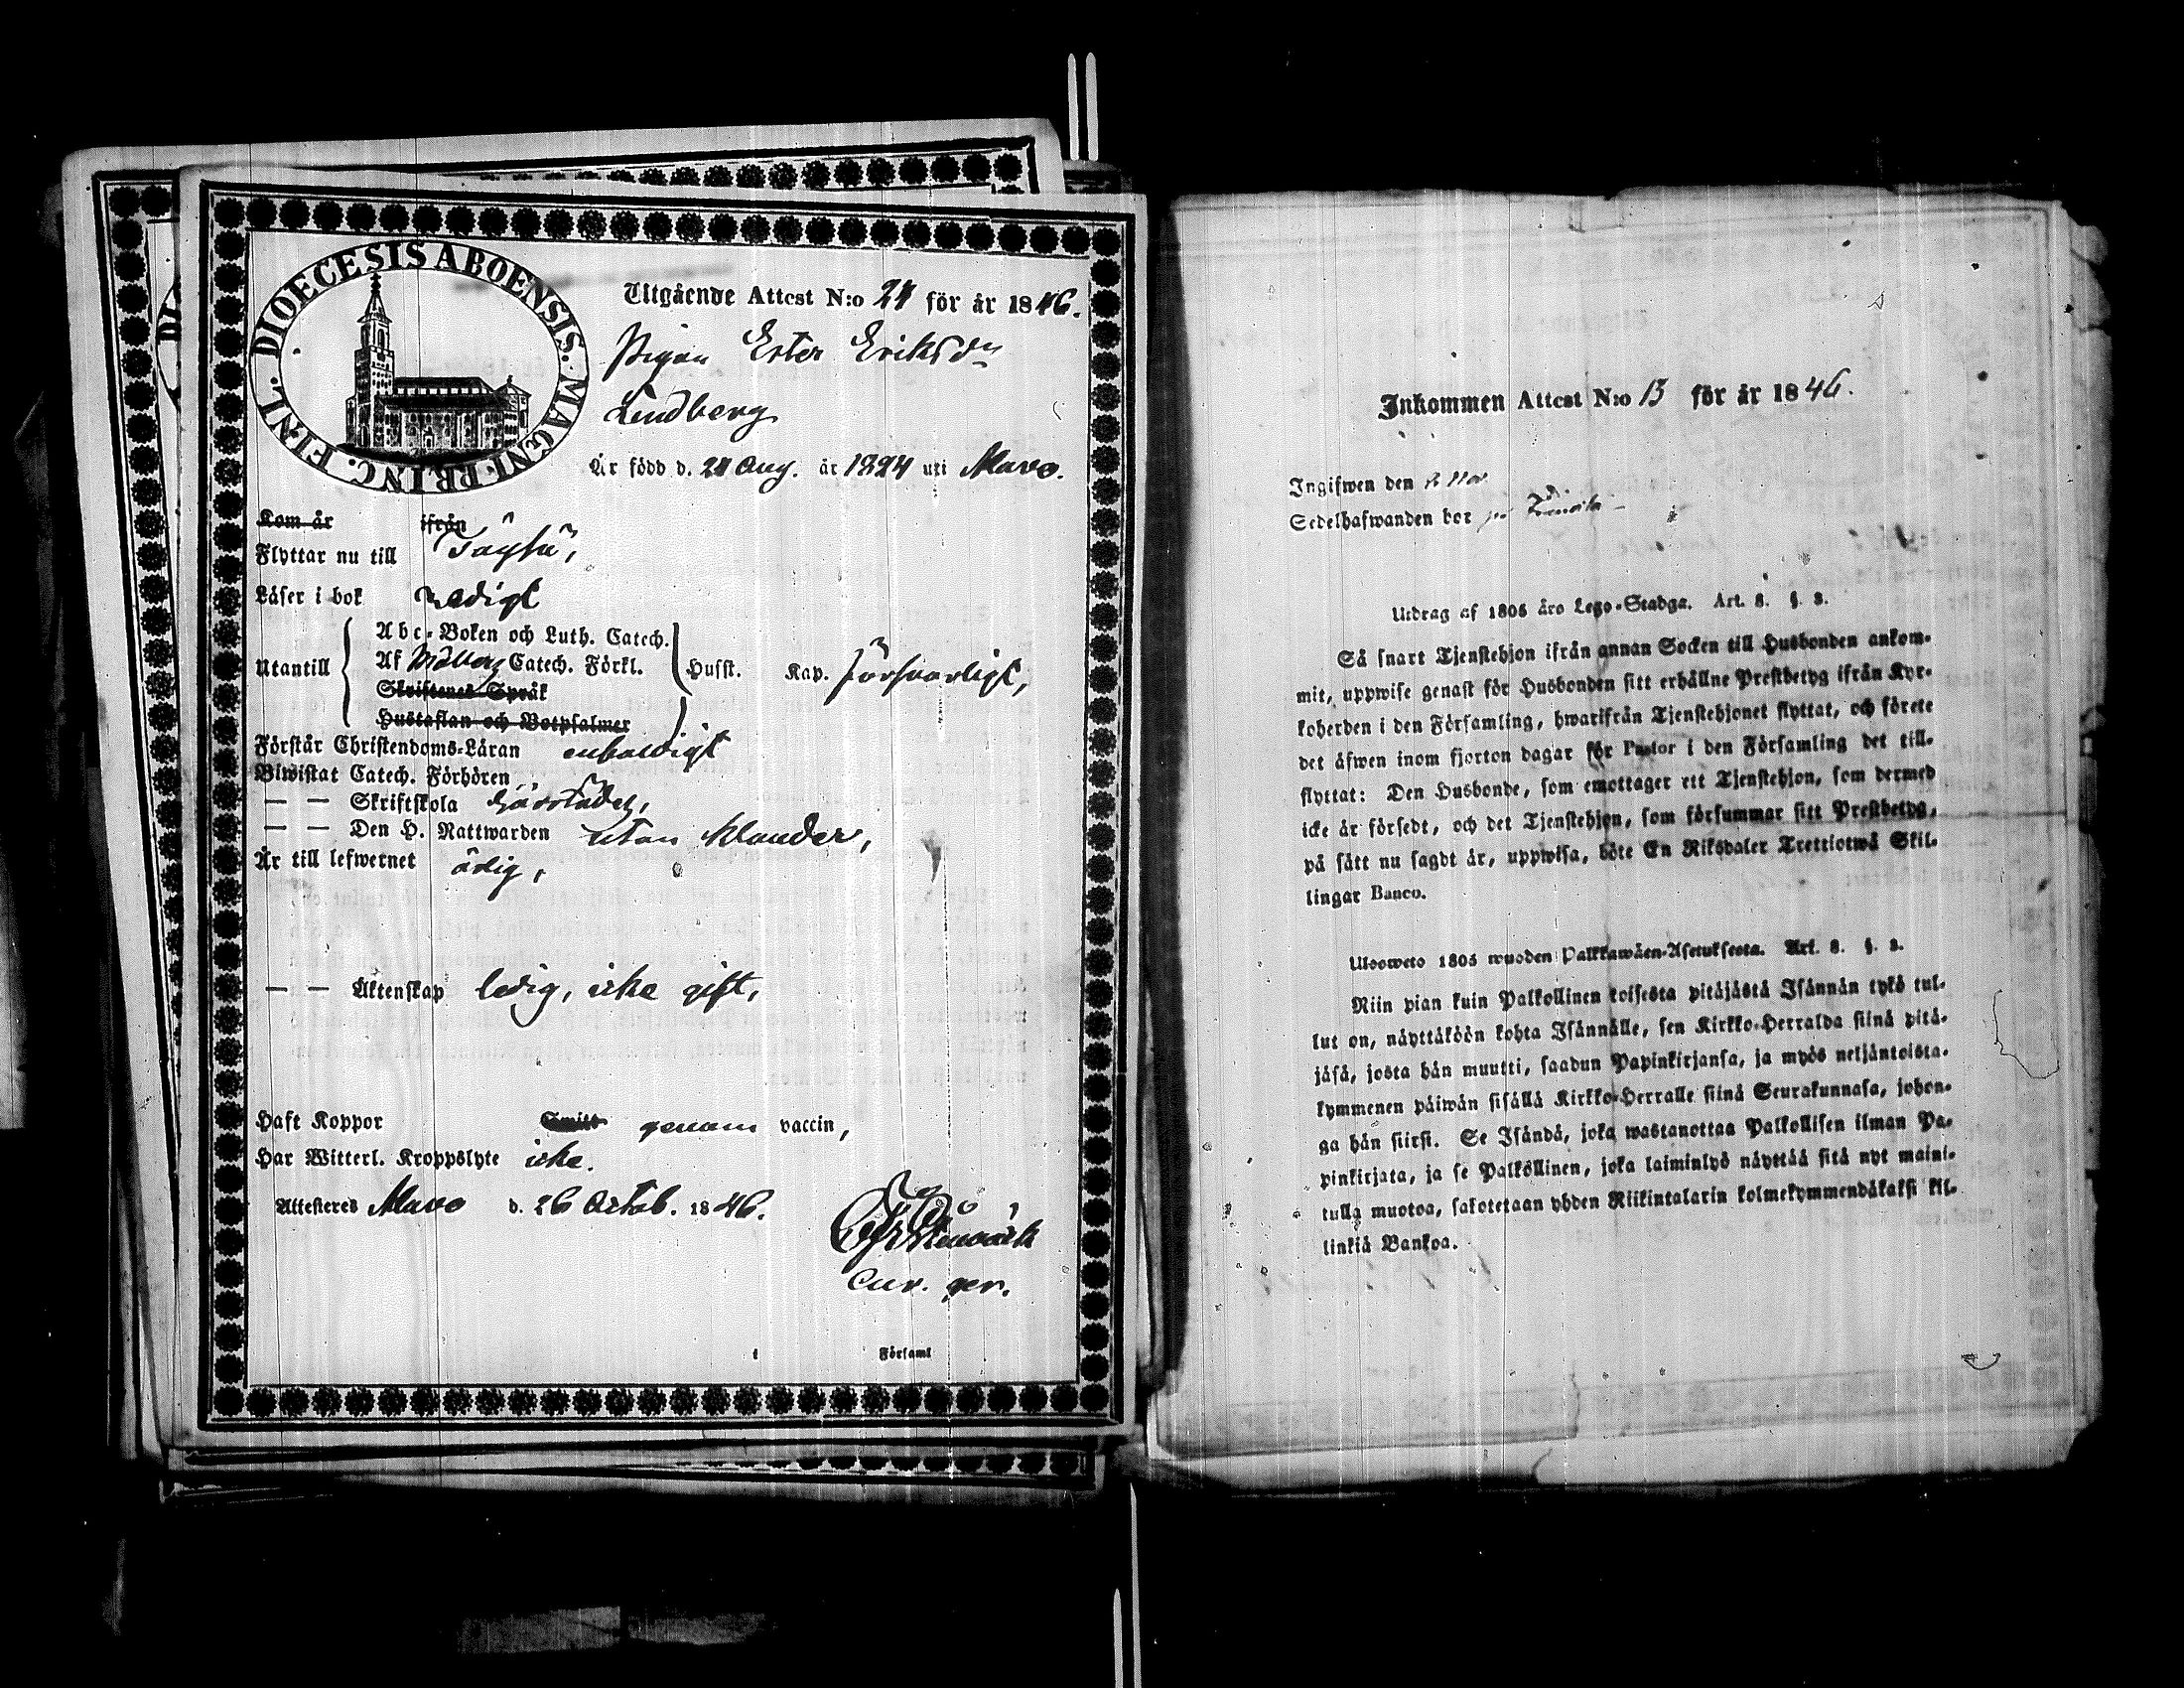 DIOECESIS ABOENSIS. MAGNI. PRINC. FINL.
Utgående Attest N:o 24 för år 1846.
Pigan Ester Eriksdr
Lindberg
Är född d. 24 Aug. år 1824 uti Mavo.
Kom år ifrån
Flyttar nu till Töysä,
Läser i bok redigt
Utantill
Abc-Boken och Luth. Catech.
Af Möllers Catech. Förkl.
Skriftenes Språk
Hustaflan och Botpsalmer
Husst. Kap. försvarligt,
Förstår Christendoms-Läran enfaldigt
Biwistat Catech. Förhören
— — Skriftskola
— — Den H. Nattwarden utan klander,
Är till lefwernet ärlig,
— — Äktenskap ledig, icke gift,
Haft Koppor genom vaccin,
Har Witterl. Kroppslyte icke.
Attesteres Mavo d. 26 Octob. 1846.
Cur. ger.
i Församl
Inkommen Attest N:o 13 för år 1846.
Ingifwen den Nov
Sedelhafwanden bor på
Utdrag af 1805 års Lego-Stadga. Art. 8. §. 3.
Så snart Tjenstehjon ifrån annan Socken till Husbonden ankom-
mit, uppwise genast för Husbonden sitt erhållne Prestbetyg ifrån Kyr-
koherden i den Församling, hwarifrån Tjenstehjonet flyttat, och förete
det äfwen inom fjorton dagar för Pastor i den Församling det till-
flyttat: Den Husbonde, som emottager ett Tjenstehjon, som dermed
icke är försedt, och det Tjenstehjon, som försummar sitt Prestbetyg,
på sätt nu sagdt är, uppwisa, böte En Riksdaler Trettiotwå Skil-
lingar Banco.
Ulosweto 1805 wuoden Palkkawäen-Asetuksesta. Art. 8. §. 3.
Niin pian kuin Palkollinen toisesta pitäjästä Isännän tykö tul-
lut on, näyttäköön kohta Isännälle, sen Kirkko-Herralda siinä pitä-
jäsä, josta hän muutti, saadun Papinkirjansa, ja myös neljäntoista-
kymmenen päiwän sisällä Kirkko-Herralle siinä Seurakunnasa, johon-
ga hän siirsi. Se Isändä, joka wastanottaa Palkollisen ilman Pa-
pinkirjata, ja se Palkollinen, joka laiminlyö näyttää sitä nyt maini-
tulla muotoa, sakotetaan yhden Riikintalarin kolmekymmendäkaksi kil-
linkiä Bankoa.